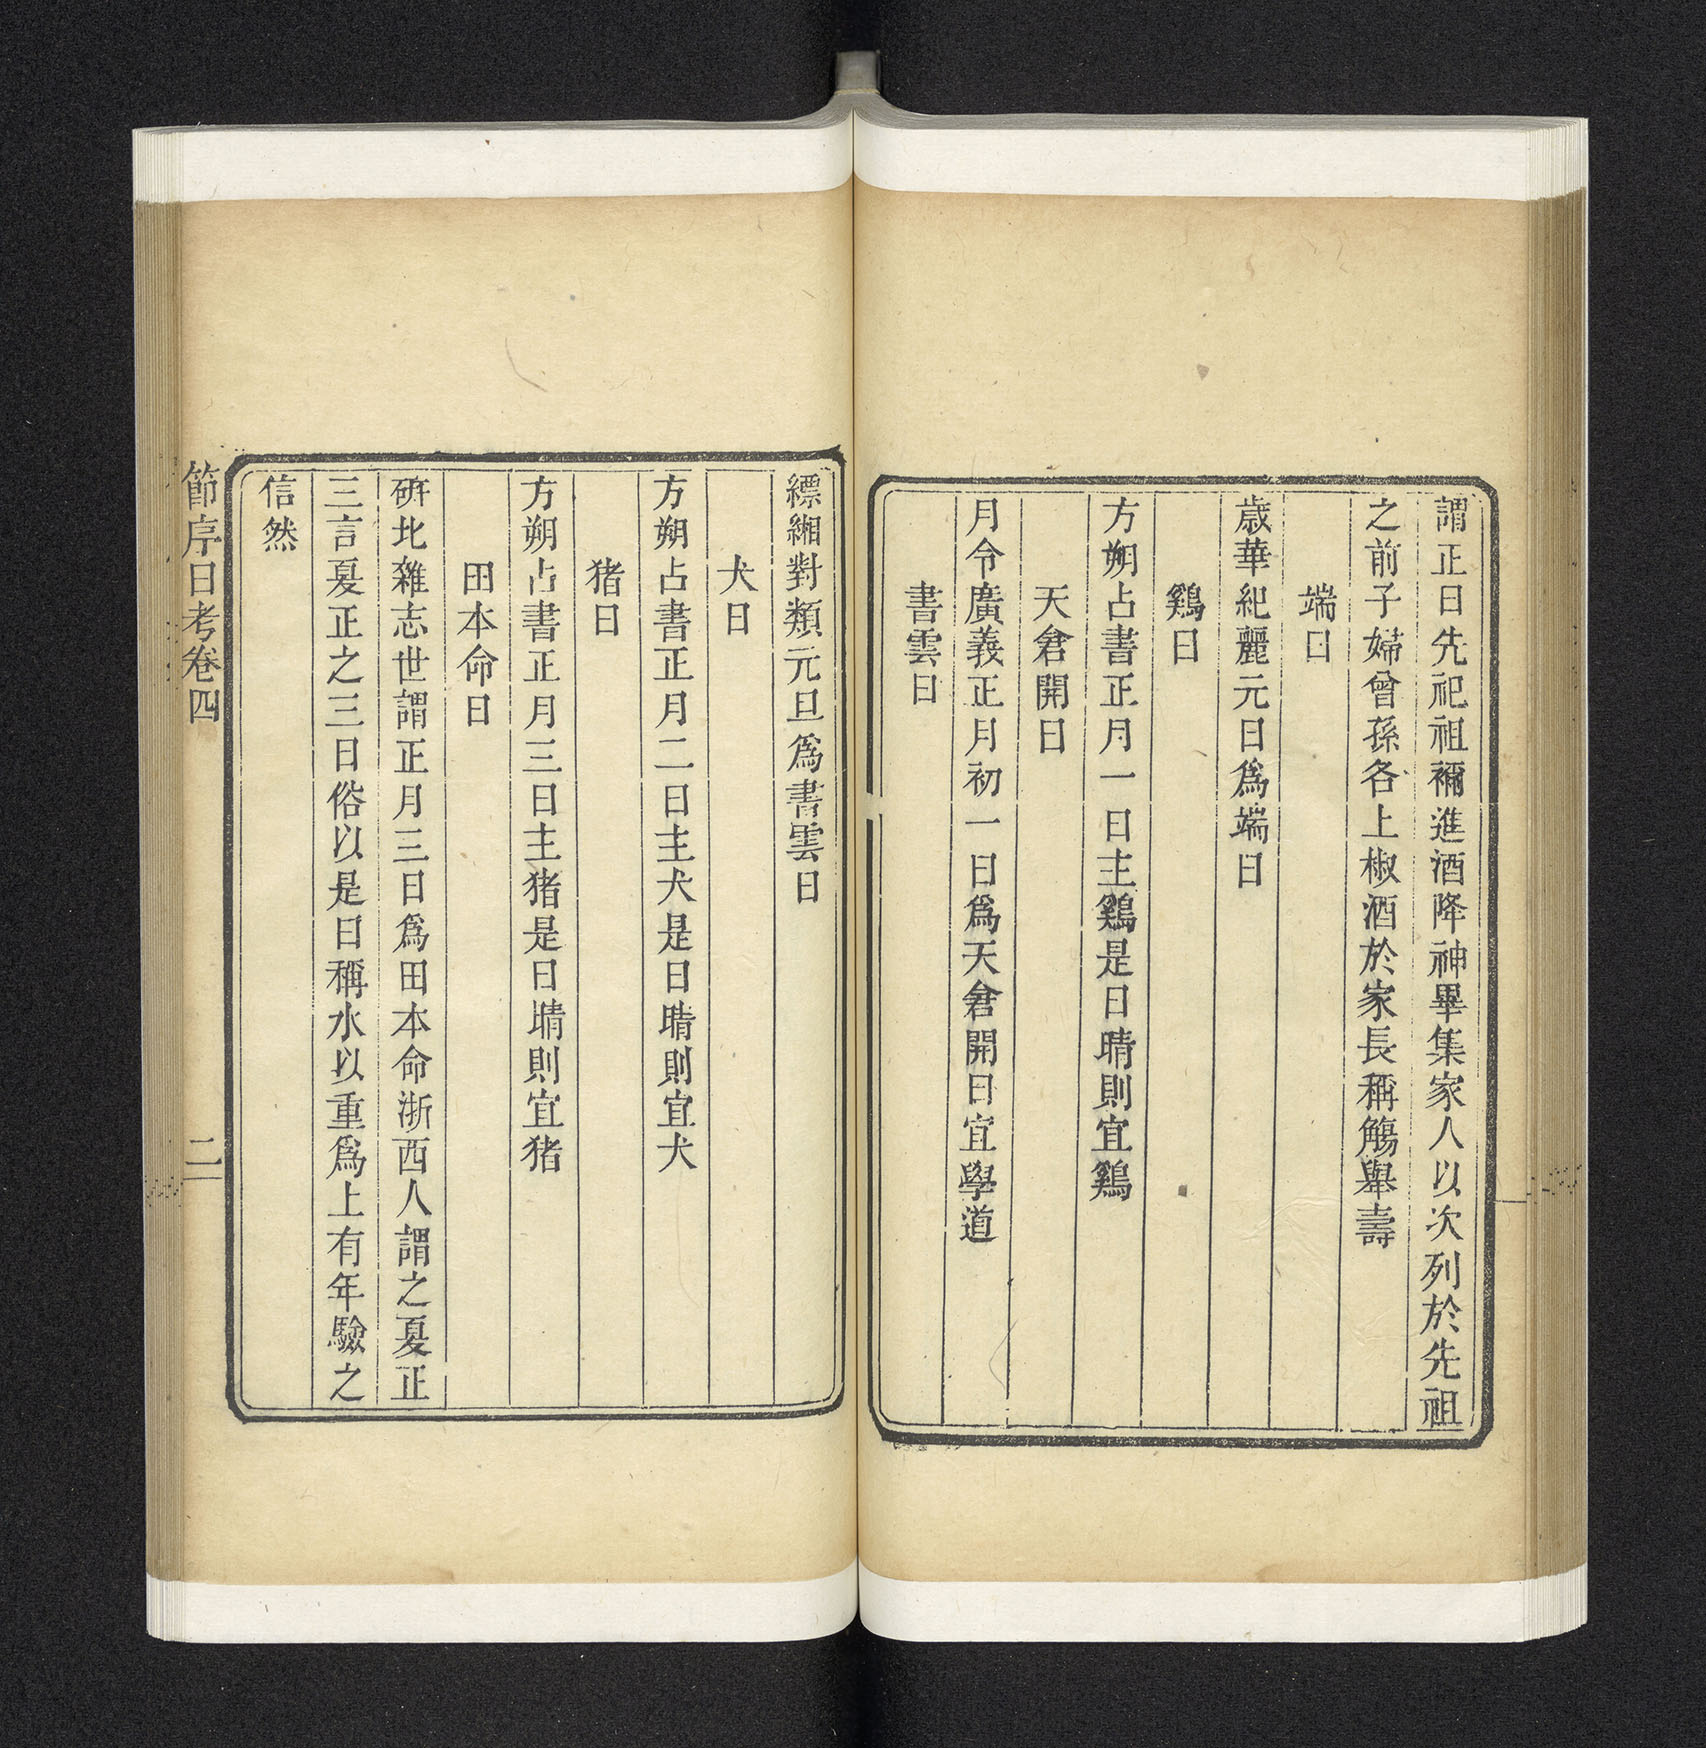 謂正日先祀祖禰進酒降神畢集家人以次列於先祖
之前子婦曾孫各上椒酒於家長稱觴舉壽
端日
歲華紀麗元日爲端日
鷄日
方朔占書正月一日主鷄是日晴則宜鷄
天倉開日
月令廣義正月初一日爲天倉開日宜學道
書雲日
縹緗對類元旦爲書雲日
犬日
方朔占書正月二日主犬是日晴則宜犬
猪日
方朔占書正月三日主猪是日晴則宜猪
田本命日
研北雜志世謂正月三日爲田本命浙西人謂之夏正
三言夏正之三日俗以是日稱水以重爲上有年驗之
信然
節序日考卷四
二